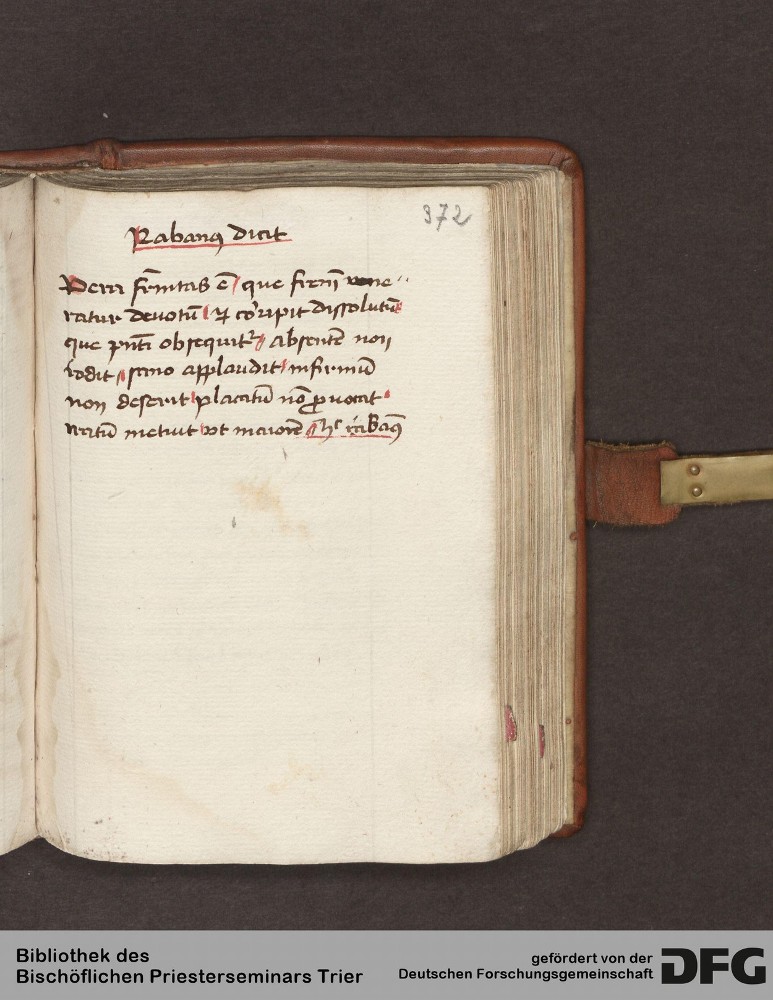 372
Rabanꝰ dicit
Vera fr̄nitas ē / que fratrē vene
ratur deuotū / ⁊ corripit dissolutū
que pn̄ti obsequit᷑ / absentē non
rodit / sano applaudit / infirmū
non deserit / placatū nō ꝓuocat
iratū metuit vt maiorē / hec rabanꝰ
Bibliothek des
Bischöflichen Priesterseminars Trier
gefördert von der
Deutschen Forschungsgemeinschaft
DFG